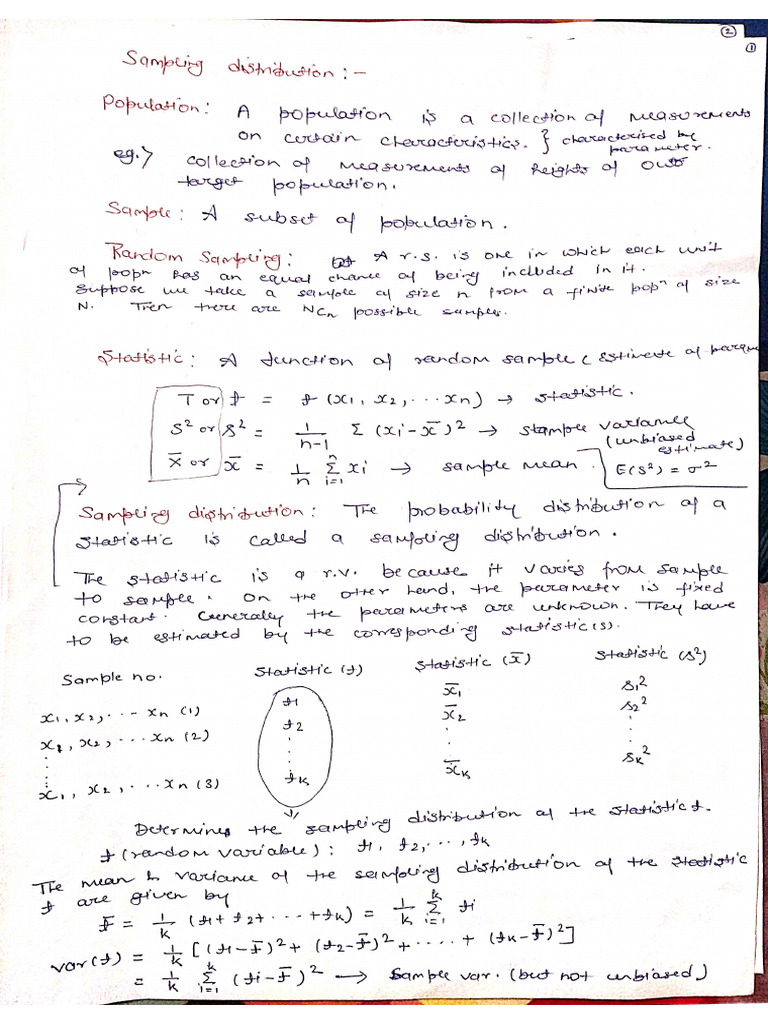 ②
①
Sampling distribution :-
Population: A population is a collection of measurements
on certain characteristics. } characterised by parameter.
eg.) collection of measurements of heights of our
target population.
Sample: A subset of population.
Random Sampling: A r.s. is one in which each unit
of popn has an equal chance of being included in it.
Suppose we take a sample of size n from a finite popn of size
N. Then there are NCn possible samples.
Statistic: A function of random sample (estimate of
T or t = t (x1, x2, ... xn) → statistic.
S² or s² = 1/(n-1) Σ (xi - x̄)² → sample variance (unbiased estimate)
X̄ or x̄ = 1/n Σ_{i=1}^{n} xi → sample mean. E(s²) = σ²
Sampling distribution: The probability distribution of a
statistic is called a sampling distribution.
The statistic is a r.v. because it varies from sample
to sample. On the other hand, the parameter is fixed
constant. Generally the parameters are unknown. They have
to be estimated by the corresponding statistic(s).
Sample no. Statistic (t) Statistic (x̄) Statistic (s²)
x1, x2, ... xn (1) t1 x̄1 s1²
x1, x2, ... xn (2) t2 x̄2 s2²
⋮ ⋮ ⋮ ⋮
x1, x2, ... xn (3) tk x̄k sk²
Determines the sampling distribution of the statistic t.
t (random variable) : t1, t2, ..., tk
The mean & variance of the sampling distribution of the statistic
t are given by
t̄ = 1/k (t1 + t2 + ... + tk) = 1/k Σ_{i=1}^{k} ti
var(t) = 1/k [(t1 - t̄)² + (t2 - t̄)² + ... + (tk - t̄)²]
= 1/k Σ_{i=1}^{k} (ti - t̄)² → Sample var. (but not unbiased)